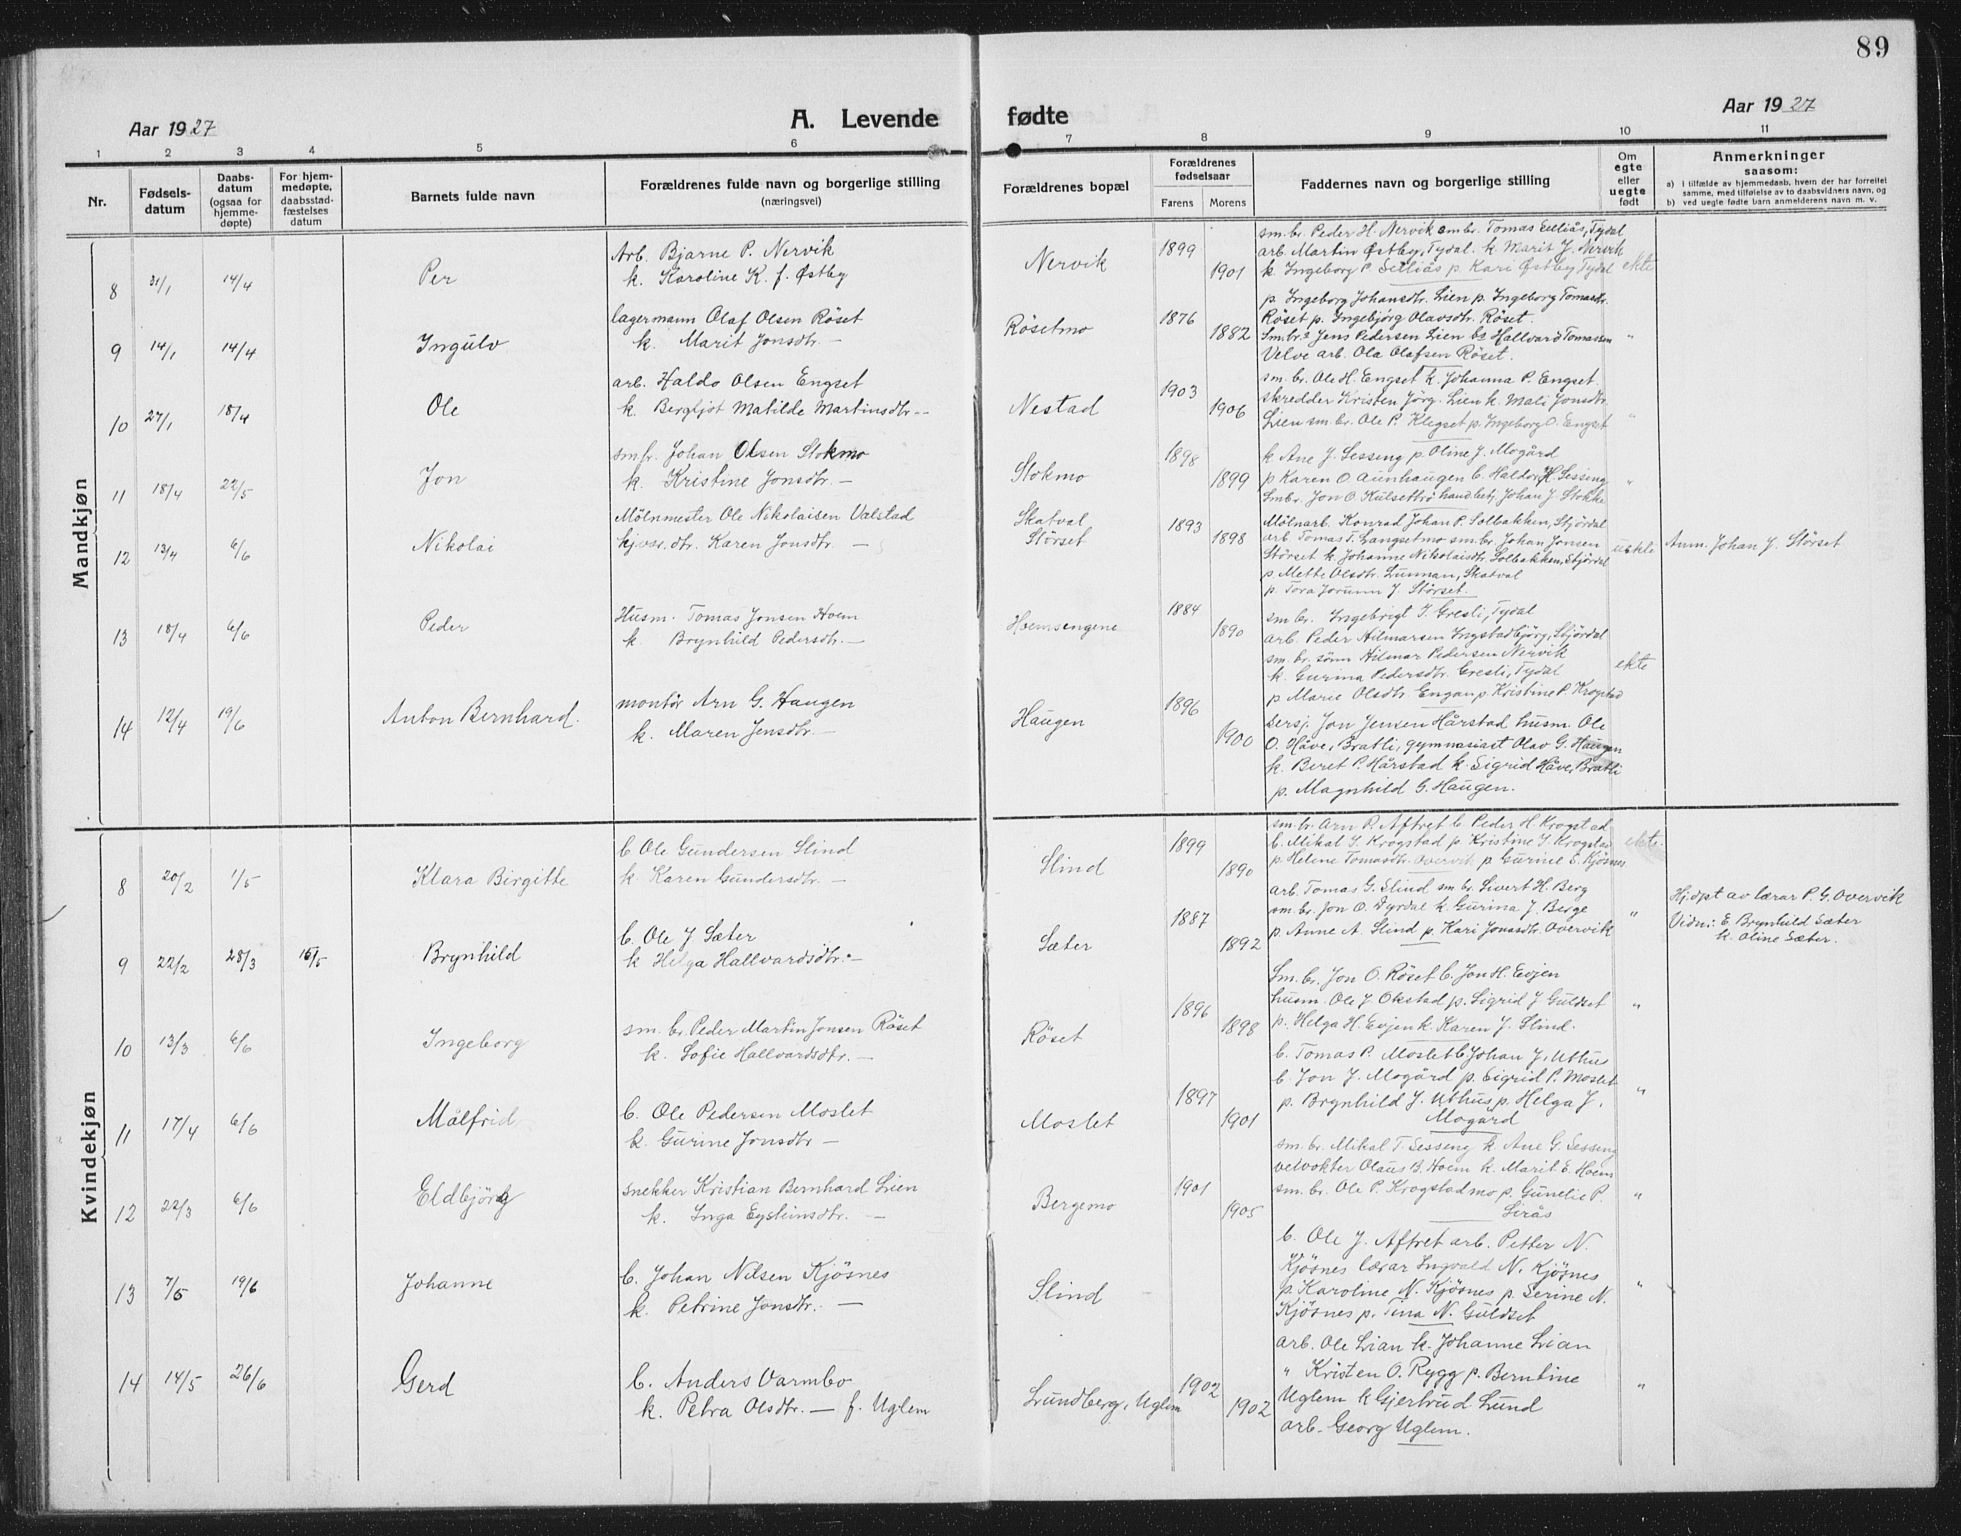 89
Aar 1927
A. Levende
fødte
Aar 1927
1 2 3 4 5 6 7 8 9 10 11
Nr.
Fødselsdatum
Daabsdatum (ogsaa for hjemmedøpte)
For hjemmedøpte, daabsstadfæstelses datum
Barnets fulde navn
Forældrenes fulde navn og borgerlige stilling
(næringsvei)
Forældrenes bopæl
Forældrenes fødselsaar
Farens Morens
Faddernes navn og borgerlige stilling
Om egte eller uegte født
Anmerkninger
saasom:
a) I tilfælde av hjemmedaab, hvem der har forrettet
samme, med tilføielse av to daabsvidners navn, og
b) ved uegte fødte barn anmelderens navn m. v.
Mandkjøn
8 31/1 14/4 Per
Arb. Bjarne P. Nervik
k. Karoline K. f. Østby
Nervik 1899 1901
sm.br. Peder H. Nervik sm.br. Tomas Selliås, Tydal
arb. Martin Østby, Tydal. k. Marit J. Nervik
k. Ingeborg P. Selliås p. Kari Østby Tydal
ekte
9 14/1 14/4 Ingulv
lagermann Olaf Olsen Röset
k. Marit Jonsdtr. —
Rösetmo 1876 1882
p. Ingeborg Johansdtr. Lien p. Ingeborg Tomasdr.
Röset p. Ingebjörg Olavsdtr. Röset.
Sm.brs Jens Pedersen Lien bs Hallvard Tomassen
Velve arb. Ola Olafsen Röset.
"
10 27/1 18/4 Ole
arb. Haldo Olsen Engset
k. Bergljot Matilde Martinsdtr. —
Nestad 1903 1906
sm.br. Ole H. Engset k. Johanna P. Engset.
skredder Kristen Jörg. Lien k. Mali Jonsdtr.
Lien sm.br. Ole P. Klegset p. Ingeborg O. Engset
"
11 18/4 22/5 Jon
sm.br. Johan Olsen Stokmo
k. Kristine Jonsdtr. —
Stokmo 1898 1899
k Ane J. Sesseng p. Oline J. Mogård
p Karen O. Aunhaugen b. Haldor H. Sesseng
Smbr. Jon O. Kulsettrö handbetj. Johan J. Stokke
"
12 13/4 6/6 Nikolai
Mölnmester Ole Nikolaisen Valstad
gårdr.dtr. Karen Jonsdtr. —
Skatval
Störset
1893 1898
Mölnarb. Konrad Johan P. Solbakken, Stjördal
arb Tomas T. Langsetmo sm.br. Johan Jonsen
Störset k. Johanne Nikolaisdtr Solbakken, Stjördal
p. Mette Olsdtr. Lunnan, Skatval
p. Tora Jorunn J. Störset.
uekte Anm. Johan J. Störset
13 18/4 6/6 Peder
Husm. Tomas Jonsen Hoem
k. Brynhild Pedersdtr. —
Hoemsengene 1884 1890
sm br. Ingebrigt J. Gresli, Tydal
arb. Peder Hilmarsen Ingstadbjörg, Stjördal
sm. br. sönn Hilmar Pedersen Nervik
k. Gurina Pedersdtr Gresli, Tydal
p Marie Olsdtr. Engan p. Kristine P. Krogstad
ekte
14 12/4 19/6 Anton Bernhard.
montör Arn G. Haugen
k. Maren Jensdtr. —
Haugen 1896 1900
Sersj. Jon Jensen Hårstad husm. Ole
O. Håve, Bratli, gymnasiast Olav G. Haugen
k. Beret P. Hårstad k. Sigrid Håve, Bratli
p. Magnhild G. Haugen.
Kvindekjøn
8 20/2 1/5 Klara Birgitte
b. Ole Gundersen Slind
k. Karen Gundersdtr. —
Slind 1899 1890
sm.br. Arn P. Aftret b. Peder H. Krogstad
b. Mikal J. Krogstad p Kristine J. Krogstad
p. Helene Tomasdtr. Overvik p Gurine E. Kjösnes
ekte
9 22/2 28/3 15/5 Brynhild
b. Ole J Sæter
k Helga Hallvardsdtr. —
Sæter 1887 1892
arb. Tomas G. Slind sm br. Sivert H. Berg
sm.br. Jon O. Dyrdal k. Gurina J. Berge
p. Anne A. Slind p Kari Jonasdtr. Overvik
"
Hj.døpt av lærar P. G. Overvik
Vidn: E. Brynhild Sæter
k. Oline Sæter.
10 13/3 6/6 Ingeborg
sm. br. Peder Martin Jonsen Röset
k. Sofie Hallvardsdtr. —
Röset 1896 1898
Sm. br. Jon O. Röset b. Jon H. Evjen
husm. Ole J Okstad p. Sigrid J Guldset
p. Helga H. Evjen k. Karen J. Slind.
"
11 17/4 6/6 Målfrid
b. Ole Pedersen Moslet
k. Gurine Jonsdtr —
Moslet 1897 1901
b. Tomas P. Moslet b. Johan J. Uthus
b. Jon J. Mogård p. Sigrid P. Moslet
p. Brynhild J. Uthus p. Helga J.
Mogård
"
12 22/3 6/6 Eldbjörg
snekker Kristian Bernhard Lien
k. Inga Eysteinsdtr. —
Bergemo 1901 1905
sm. br. Mikal T. Sesseng k Ane G. Sesseng
velvokter Olaus B. Hoem k. Marit E. Hoem
sm. br. Ole P. Krogstadmo p. Gunelie P.
Lirås
"
13 7/5 19/6 Johanne
b. Johan Nilsen Kjösnes
k. Petrine Jonsdtr. —
Slind
b. Ole J. Aftret arb. Petter N.
Kjösnes lærar Ingvald N. Kjösnes
p Karoline N. Kjösnes p. Serine N.
Kjösnes p. Tina N. Guldset
"
14 14/5 26/6 Gerd
b. Anders Varmbo
k. Petra Olsdtr. — f. Uglem
Lundberg, Uglem 1902 1902
arb. Ole Lian k. Johanne Lian
" Kristen O. Rygg p. Berntine
Uglem k Gjertrud Lund
arb. Georg Uglem.
"